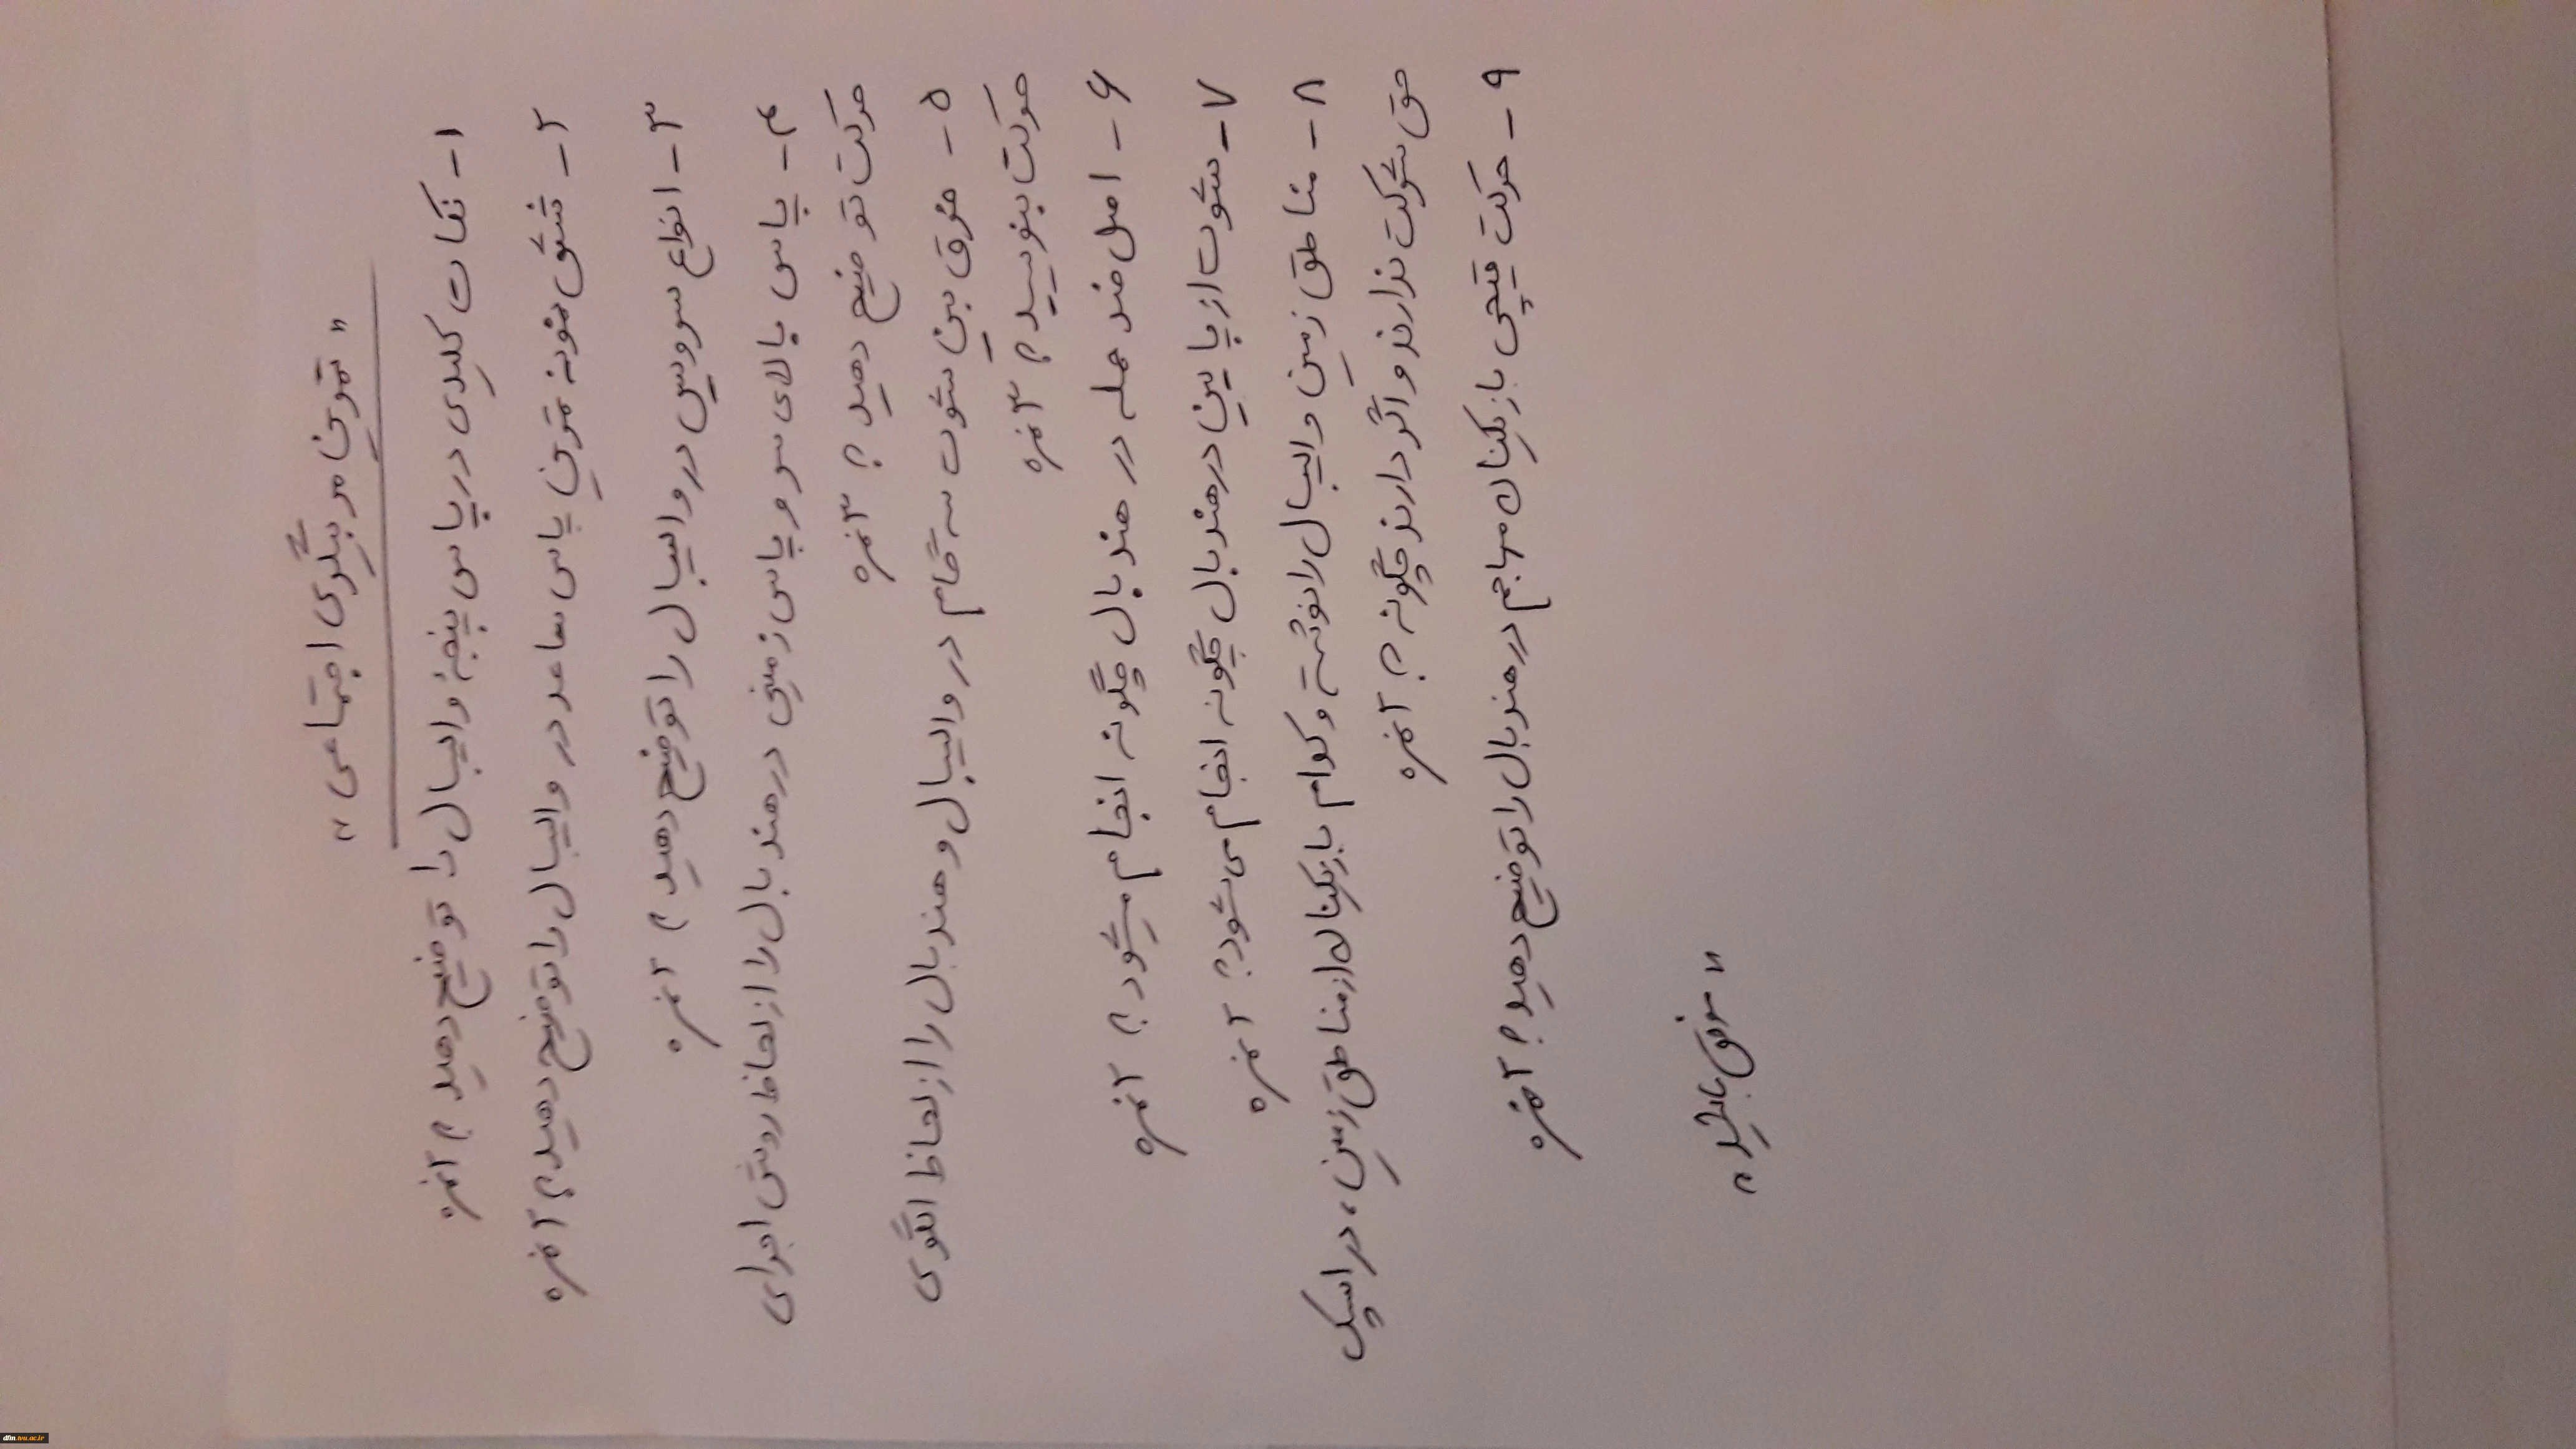 " تمرین مربیگری اجتماعی "
۱- نکات کلیدی در پاس پنجه والیبال را توضیح دهید؟ ۲نمره
۲- شش نمونه تمرین پاس ساعد در والیبال را توضیح دهید؟ ۲نمره
۳- انواع سرویس در والیبال را توضیح دهید؟ ۲نمره
۴- پاس بالای سر و پاس زمینی در هندبال را از لحاظ روش اجرای
حرکت توضیح دهید؟ ۳نمره
۵- فرق بین شوت سه گام در والیبال و هندبال را از لحاظ الگوی
حرکت بنویسید؟ ۳نمره
۶- اصل ضد حمله در هندبال چگونه انجام میشود؟ ۲نمره
۷- شوت از پایین در هندبال چگونه انجام می شود؟ ۲نمره
۸- مناطق زمین والیبال را نوشته و کدام بازیکنان از مناطق زمین، در اسپک
حق شرکت ندارند و اگر دارند چگونه؟ ۲نمره
۹- حرکت قیچی بازیکنان مهاجم در هندبال را توضیح دهید؟ ۲نمره
" موفق باشید "
dfm.tvu.ac.ir